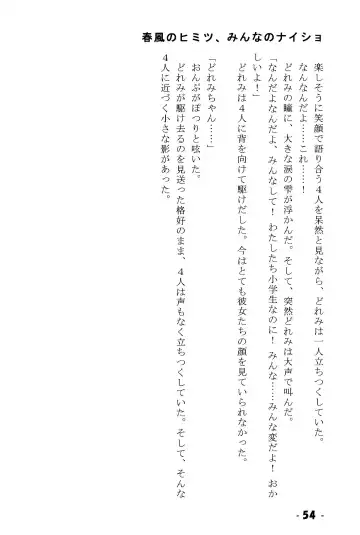 春風のヒミツ、みんなのナイショ
　楽しそうに笑顔で語り合う４人を呆然と見ながら、どれみは一人立ちつくしていた。
　なんなんだよ……これ……！
　どれみの瞳に、大きな涙の雫が浮かんだ。そして、突然どれみは大声で叫んだ。
「なんだよなんだよ、みんなして！　わたしたち小学生なのに！　みんな……みんな変だよ！　おか
しいよ！」
　どれみは４人に背を向けて駆けだした。今はとても彼女たちの顔を見ていられなかった。
「どれみちゃん……」
　おんぷがぽつりと呟いた。
　どれみが駆け去るのを見送った格好のまま、４人は声もなく立ちつくしていた。そして、そんな
４人に近づく小さな影があった。
- 54 -